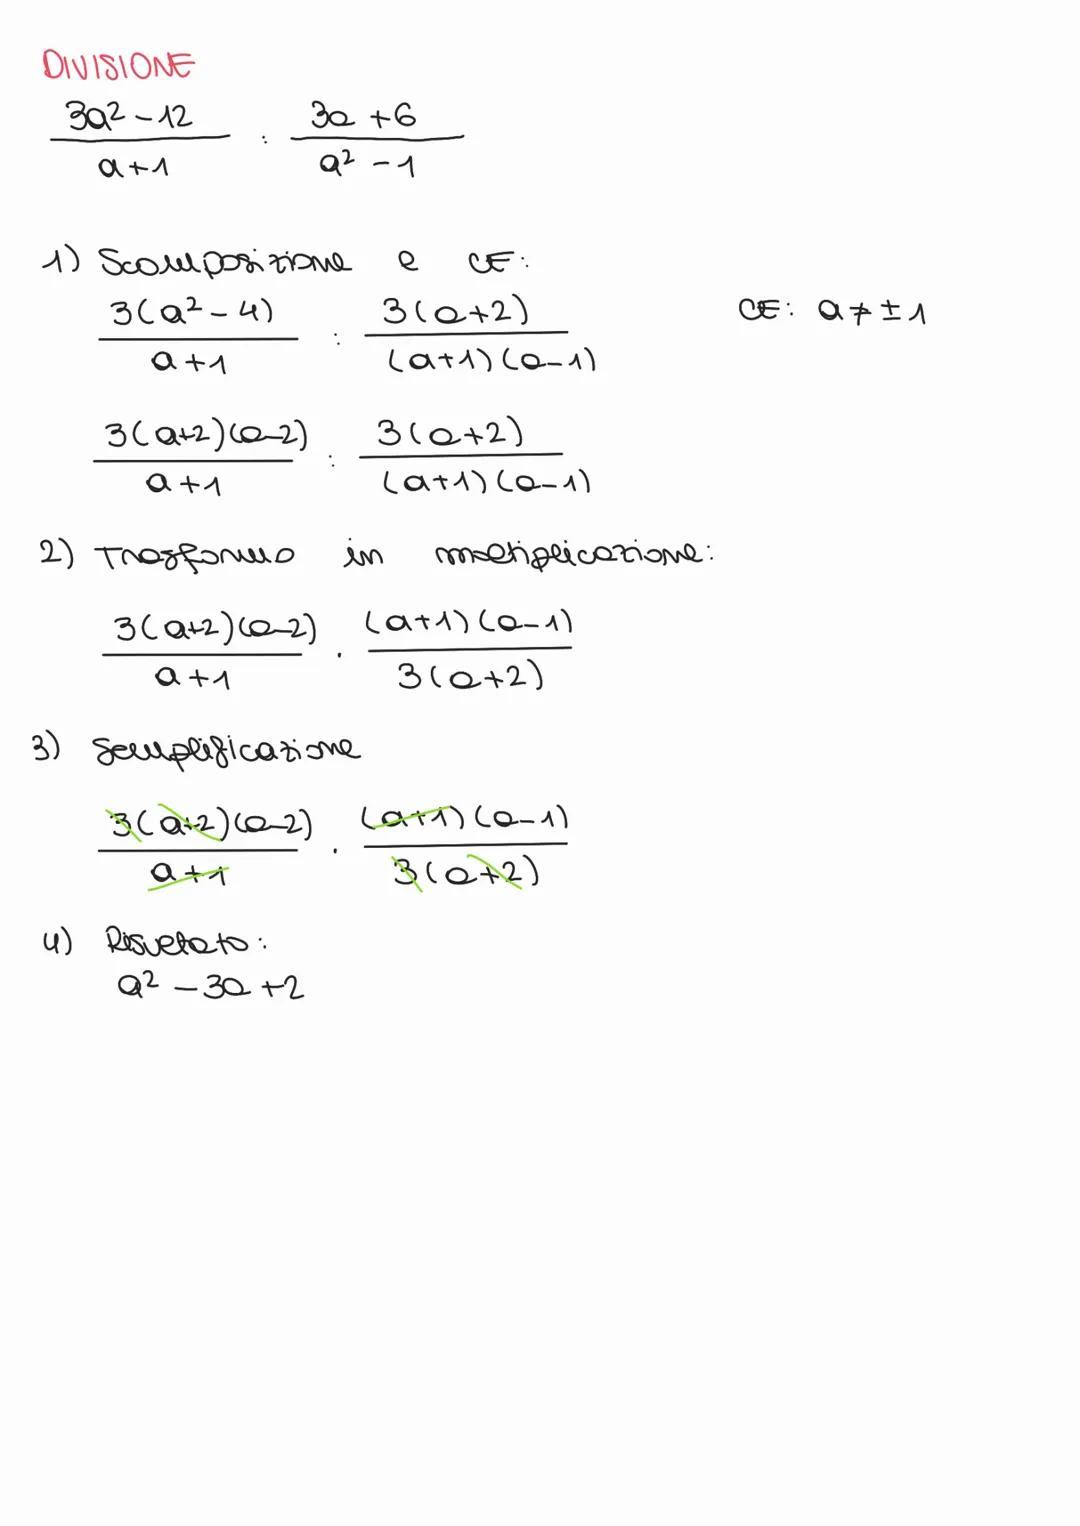 DIVISIONE
3a² - 12 / a + 1 : 3a + 6 / a² - 1
1) Scomposizione e CE:
3(a² - 4) / a + 1 : 3(a+2) / (a+1)(a-1) CE: a ≠ ± 1
3(a+2)(a-2) / a + 1 : 3(a+2) / (a+1)(a-1)
2) Trasformo in moltiplicazione:
3(a+2)(a-2) / a + 1 · (a+1)(a-1) / 3(a+2)
3) Semplificazione
3(a+2)(a-2) / a + 1 · (a+1)(a-1) / 3(a+2)
4) Risultato:
a² - 3a + 2